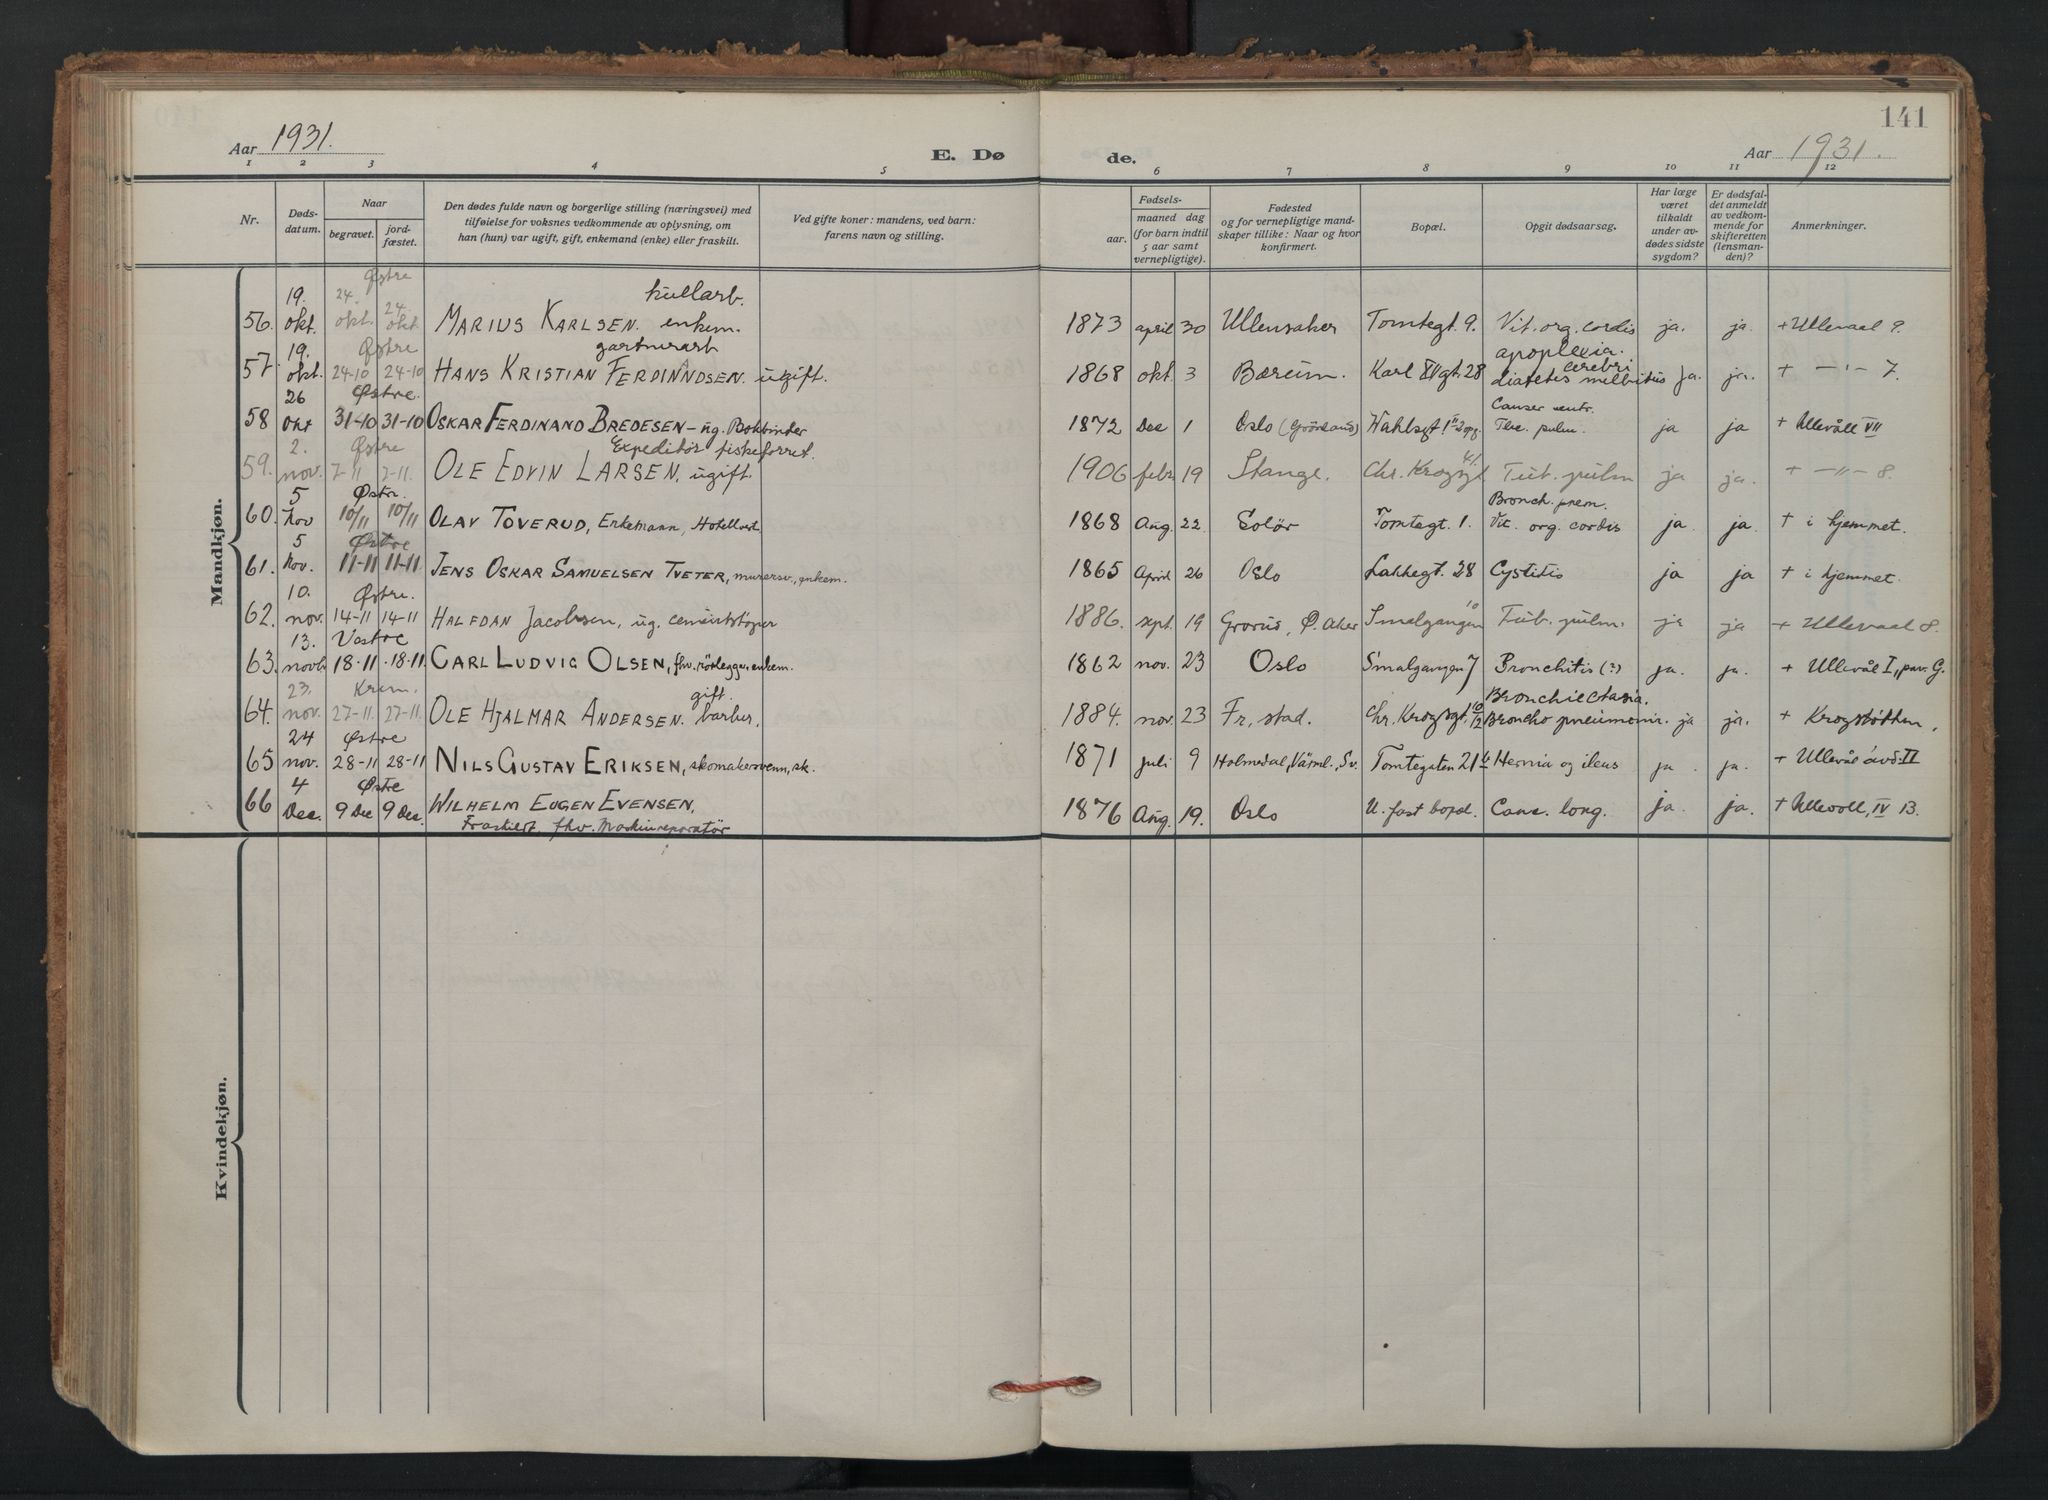 141
Aar 1931. E. Dø de. Aar 1931.
1 2 3 4 5 6 7 8 9 10 11 12
Nr. Døds-datum. Naar begravet. jord-fæstet. Den dødes fulde navn og borgerlige stilling (næringsvei) med tilføielse for voksnes vedkommende av oplysning, om han (hun) var ugift, gift, enkemand (enke) eller fraskilt. Ved gifte koner: mandens, ved barn: farens navn og stilling. Fødsels- aar. maaned dag (for barn indtil 5 aar samt vernepligtige). Fødested og for vernepligtige mandskaper tillike: Naar og hvor konfirmert. Bopæl. Opgit dødsaarsag. Har læge været tilkaldt under avdødes sidste sygdom? Er dødsfaldet anmeldt av vedkommende for skifteretten (lensmanden)? Anmerkninger.
Mandkjøn.
Østre
56. 19. okt. 24. okt. 24. okt. MARIUS KARLSEN. enkem. kullarb. 1873 april 30 Ullensaker Tomtegt. 9. Vit. org. cordis ja. ja. + Ullevaal 9.
Østre
57. 19. okt. 24-10 24-10 HANS KRISTIAN FERDINANDSEN. ugift. gartnerarb 1868 okt. 3 Bærum. Karl XII gt. 28 apoplexia cerebri. diabetes mellitus ja. ja. + —"— 7.
Østre.
58 26 Okt 31-10 31-10 OSKAR FERDINAND BREDESEN - ug. Bokbinder 1872 Dec 1 Oslo (Grønland) Wahlsgt 1 II opg. Cancer ventr. Tbc. pulm. ja ja + Ullevåll VII
Østre
59. 2. nov. 7-11 7-11. OLE EDVIN LARSEN, ugift. Expeditør fiskeforret. 1906 febr 19 Stange. Chr. Krogsgt 41. Tub. pulm ja ja. + —"— 8.
Østre.
60. 5 Nov 10/11 10/11 OLAV TOVERUD, Enkemann, Hotellvert 1868 Aug. 22 Solør Tomtegt. 1. Bronch. pnem. Vit. org. cordis ja. ja. + i hjemmet.
Østre
61. 5 Nov. 11-11 11-11. JENS OSKAR SAMUELSEN TVETER, murersv., enkem. 1865 April 26 Oslo Lakkegt. 28 Cystitis ja ja + i hjemmet.
Østre.
62. 10. nov. 14-11 14-11 HALFDAN Jacobsen, ug. cementstøper 1886. sept. 19 Grorud, Ø. Aker Smalgangen 10 Tub. pulm. ja ja + Ullevaal 8.
Vestre
63. 13. novb 18-11 18-11. CARL LUDVIG OLSEN, fhv. rørlegger, enkem. 1862 nov. 23 Oslo Smalgangen 7 Bronchitis (?) ja. ja. + Ullevål I, pav. G.
Krem.
64. 23. nov. 27-11. 27-11. OLE HJALMAR ANDERSEN. gift. barber. 1884. nov. 23 Fr. stad. Chr. Krogsgt. Bronchiectasia. Broncho pneumonir. ja ja. + Krogstøtten.
Østre
65 24 nov. 28-11 28-11 NILS GUSTAV ERIKSEN, skomakersvenn, sk. 1871 juli 9 Holmedal, Värml., Sv. Tomtegaten 21 b Hernia og ileus ja. ja. + Ullevål avd. II
Østre
66 4 Dec. 9 Dec 9 Dec. WILHELM EUGEN EVENSEN, 1876 Aug. 19. Oslo U. fast bopel. Canc. long. ja. ja. + Ullevoll, IV 13.
Fraskilt fhv. Maskinreparatør
Kvindekjøn.